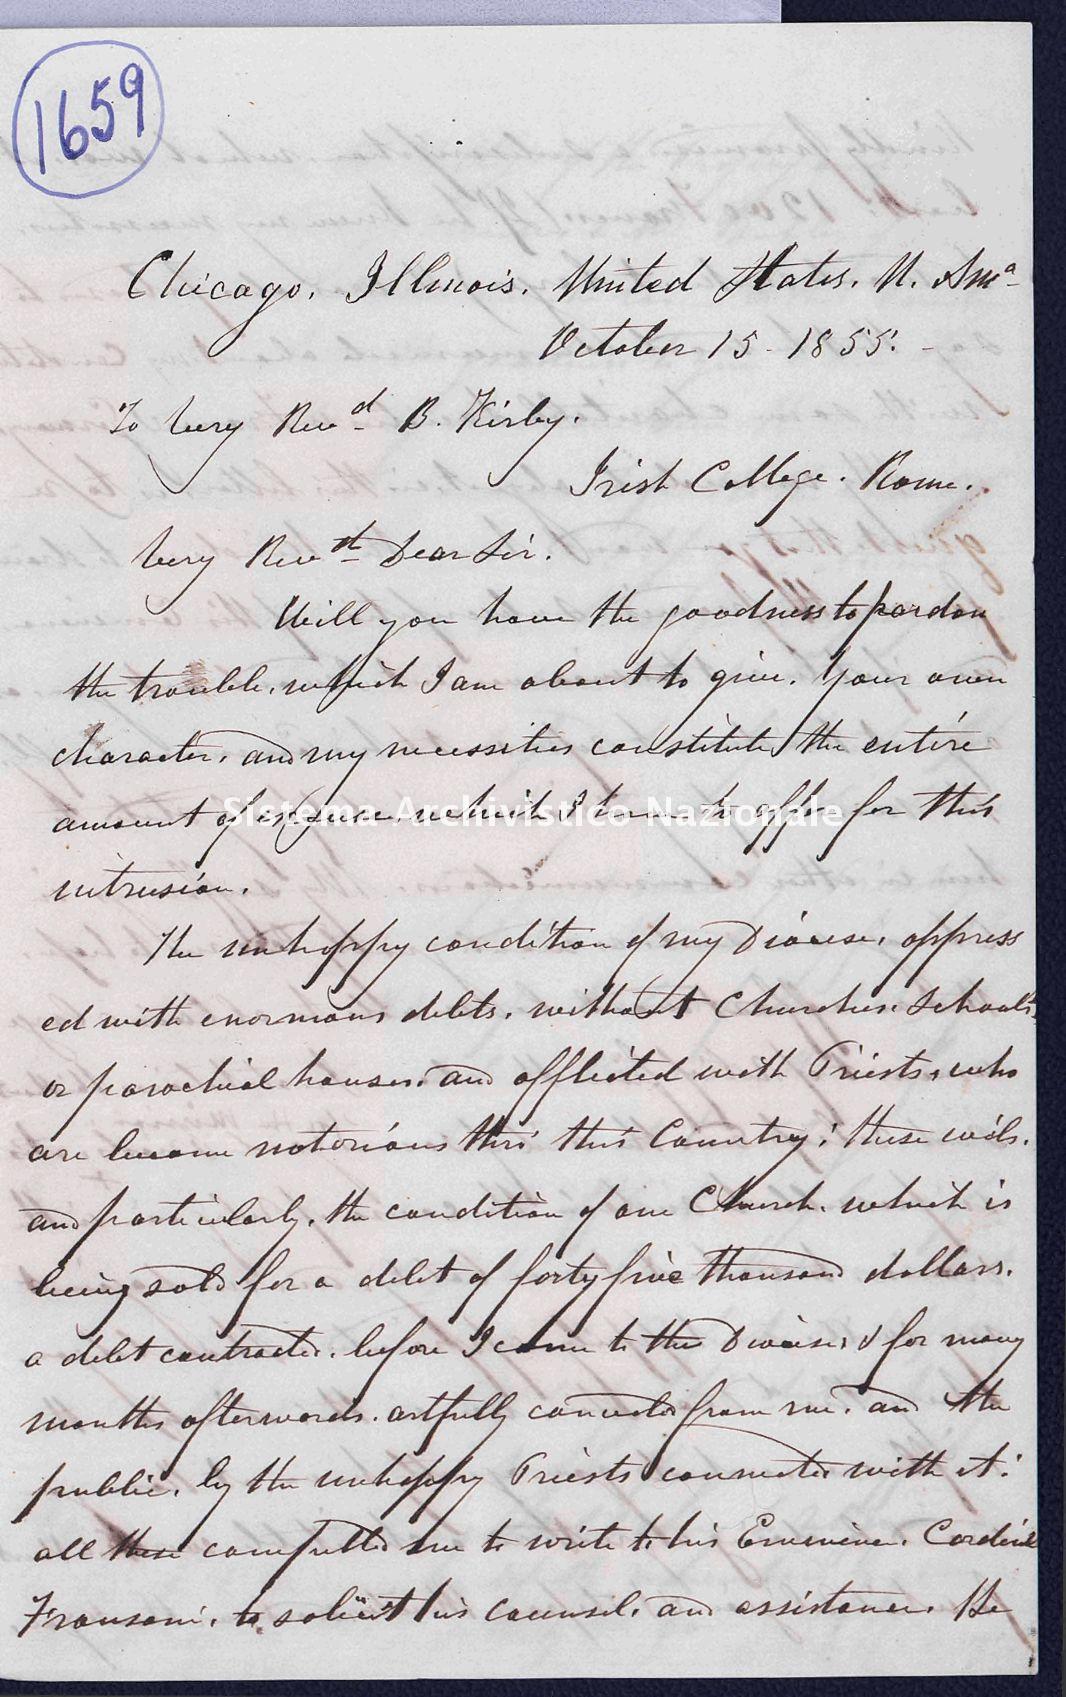 1659
Chicago. Illinois. United States. N. Ama
October 15 - 1855. -
To Very Revd B. Kirby.
Irish College. Rome.
Very Revd Dear Sir.
Will you have the goodness to pardon
the trouble, which I am about to give. Your own
character, and my necessities constitute the entire
amount of excuse, which I have to offer for this
Sistema Archivistico Nazionale
intrusion.
The unhappy condition of my Diocese, oppress
ed with enormous debts, without Churches, Schools,
or parochial houses, and afflicted with Priests, who
are become notorious thro' this Country; these evils,
and particularly, the condition of one Church, which is
being sold for a debt of forty five thousand dollars.
a debt contracted, before I came to the Diocese, & for many
months afterwards, artfully concealed from me, and the
public, by the unhappy Priests connected with it:
all these compelled me to write to his Eminence, Cardinal
Fransoni, to solicit his counsel, and assistance. He